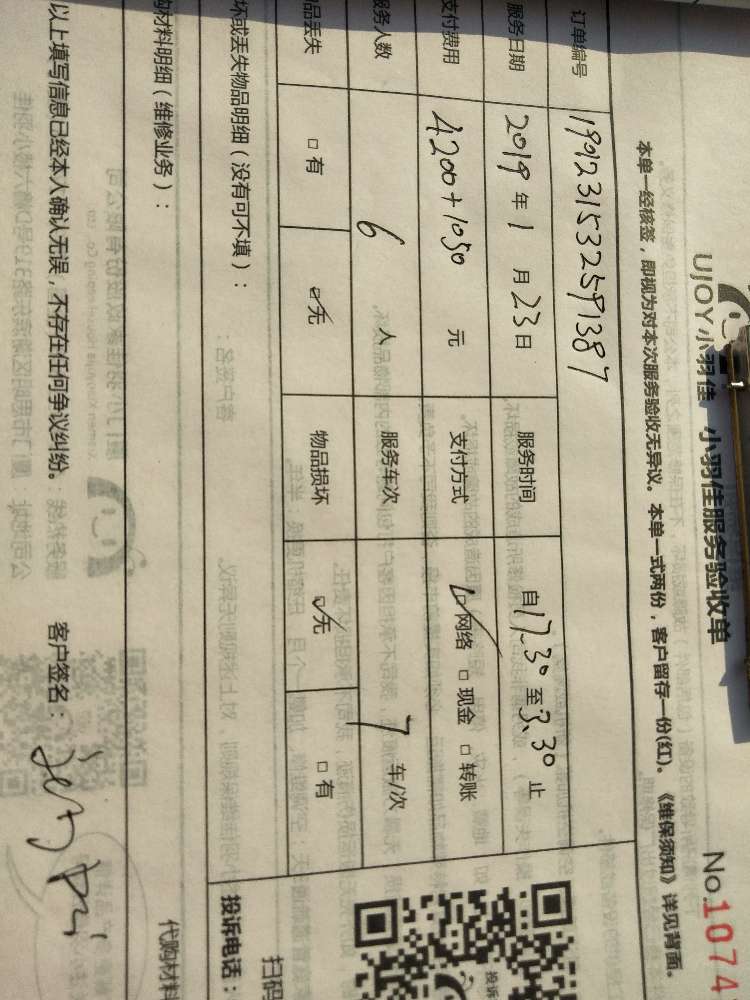 UJOY小羽佳 小羽佳服务验收单
No.1074
本单一经核签，即视为对本次服务验收无异议。本单一式两份，客户留存一份(红)。《维保须知》详见背面。
订单编号
服务日期 2019年1月23日 服务时间 自17.30至3.30止
支付费用 4200+1050元 支付方式 网络 □现金 □转账
服务人数 6人 服务车次 7车/次
品丢失 □有 □无 物品损坏 □无 □有
坏或丢失物品明细（没有可不填）：
投诉电话：
扫码
购材料明细（维修业务）：
代购材料
以上填写信息已经本人确认无误，不存在任何争议纠纷。 客户签名：